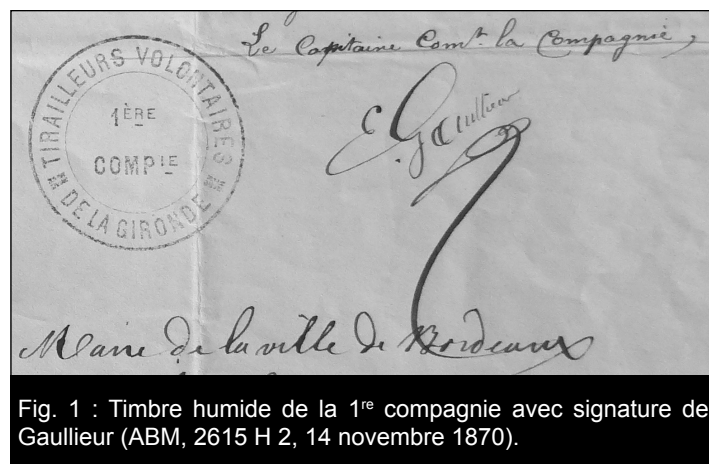 Le Capitaine Comt. la Compagnie,
TIRAILLEURS VOLONTAIRES
DE LA GIRONDE
1ÈRE
COMPIE
E. Gaullieur
Maire de la ville de Bordeaux
Fig. 1 : Timbre humide de la 1re compagnie avec signature de
Gaullieur (ABM, 2615 H 2, 14 novembre 1870).